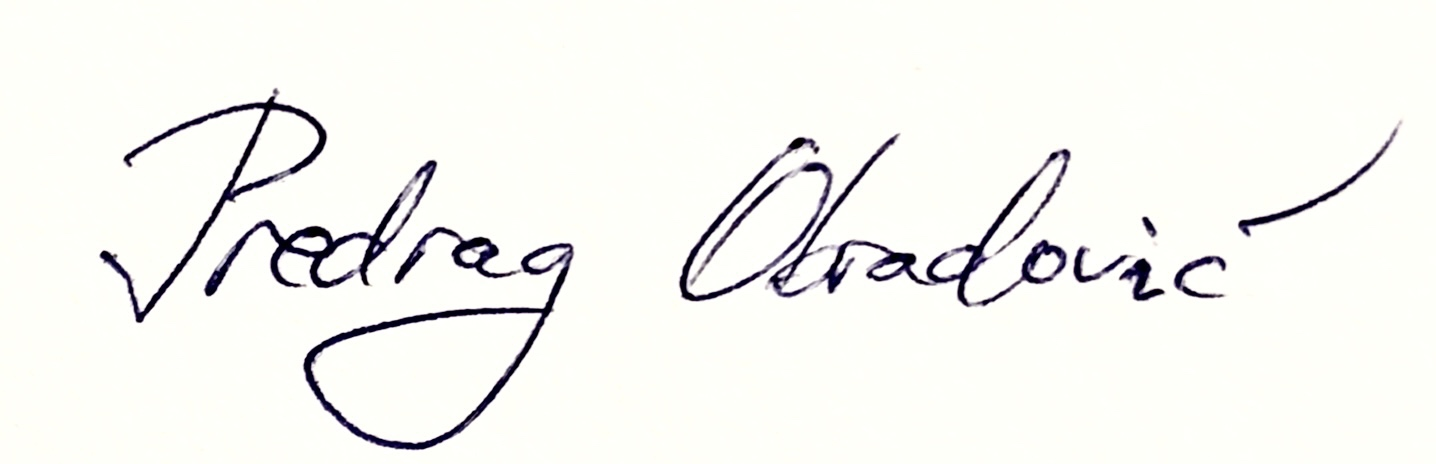 Predrag Obradović